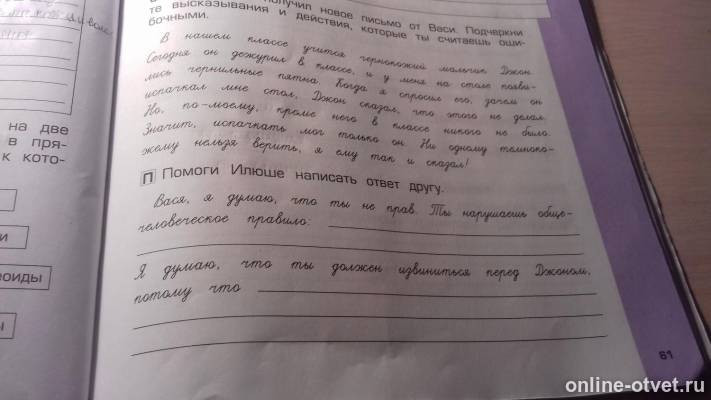 получил новое письмо от Васи. Подчеркни
те высказывания и действия, которые ты считаешь оши-
бочными.
В нашем классе учится чернокожий мальчик Джон.
Сегодня он дежурил в классе, и у меня на столе появи-
лись чернильные пятна. Когда я спросил его, зачем он
испачкал мне стол, Джон сказал, что этого не делал.
Но, по-моему, кроме него в классе никого не было.
Значит, испачкать мог только он. Ни одному темноко-
жему нельзя верить, я ему так и сказал!
П Помоги Илюше написать ответ другу.
Вася, я думаю, что ты не прав. Ты нарушаешь обще-
человеческое правило:
Я думаю, что ты должен извиниться перед Джоном,
потому что
на две
в пря-
к кото-
и
еоиды
ы
61
online-otvet.ru